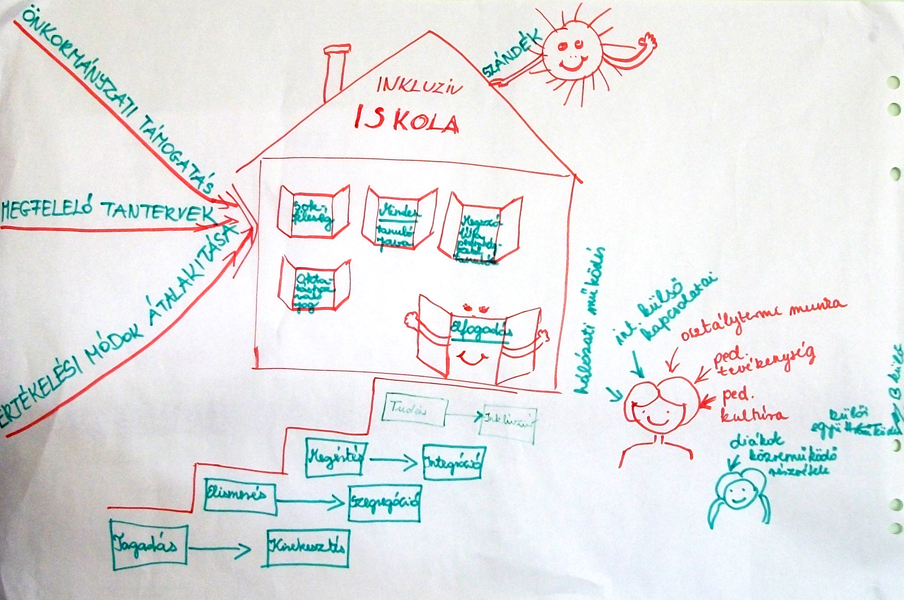 ÖNKORMÁNYZATI TÁMOGATÁS
MEGFELELŐ TANTERVEK
ÉRTÉKELÉSI MÓDOK ÁTALAKÍTÁSA
SZÁNDÉK
INKLUZIV
ISKOLA
Sok-
féleség
Minden
tanuló
java
Okta-
jog
Elfogadás
Tudás
Inkluzió
Megértés
Integráció
Elismerés
Szegregáció
Tagadás
Kirekesztés
hálózati működés
int. külső
kapcsolatai
osztálytermi munka
ped.
tevékenység
ped.
kultúra
külső
együttműködés
diákok
közreműködő
részvétele